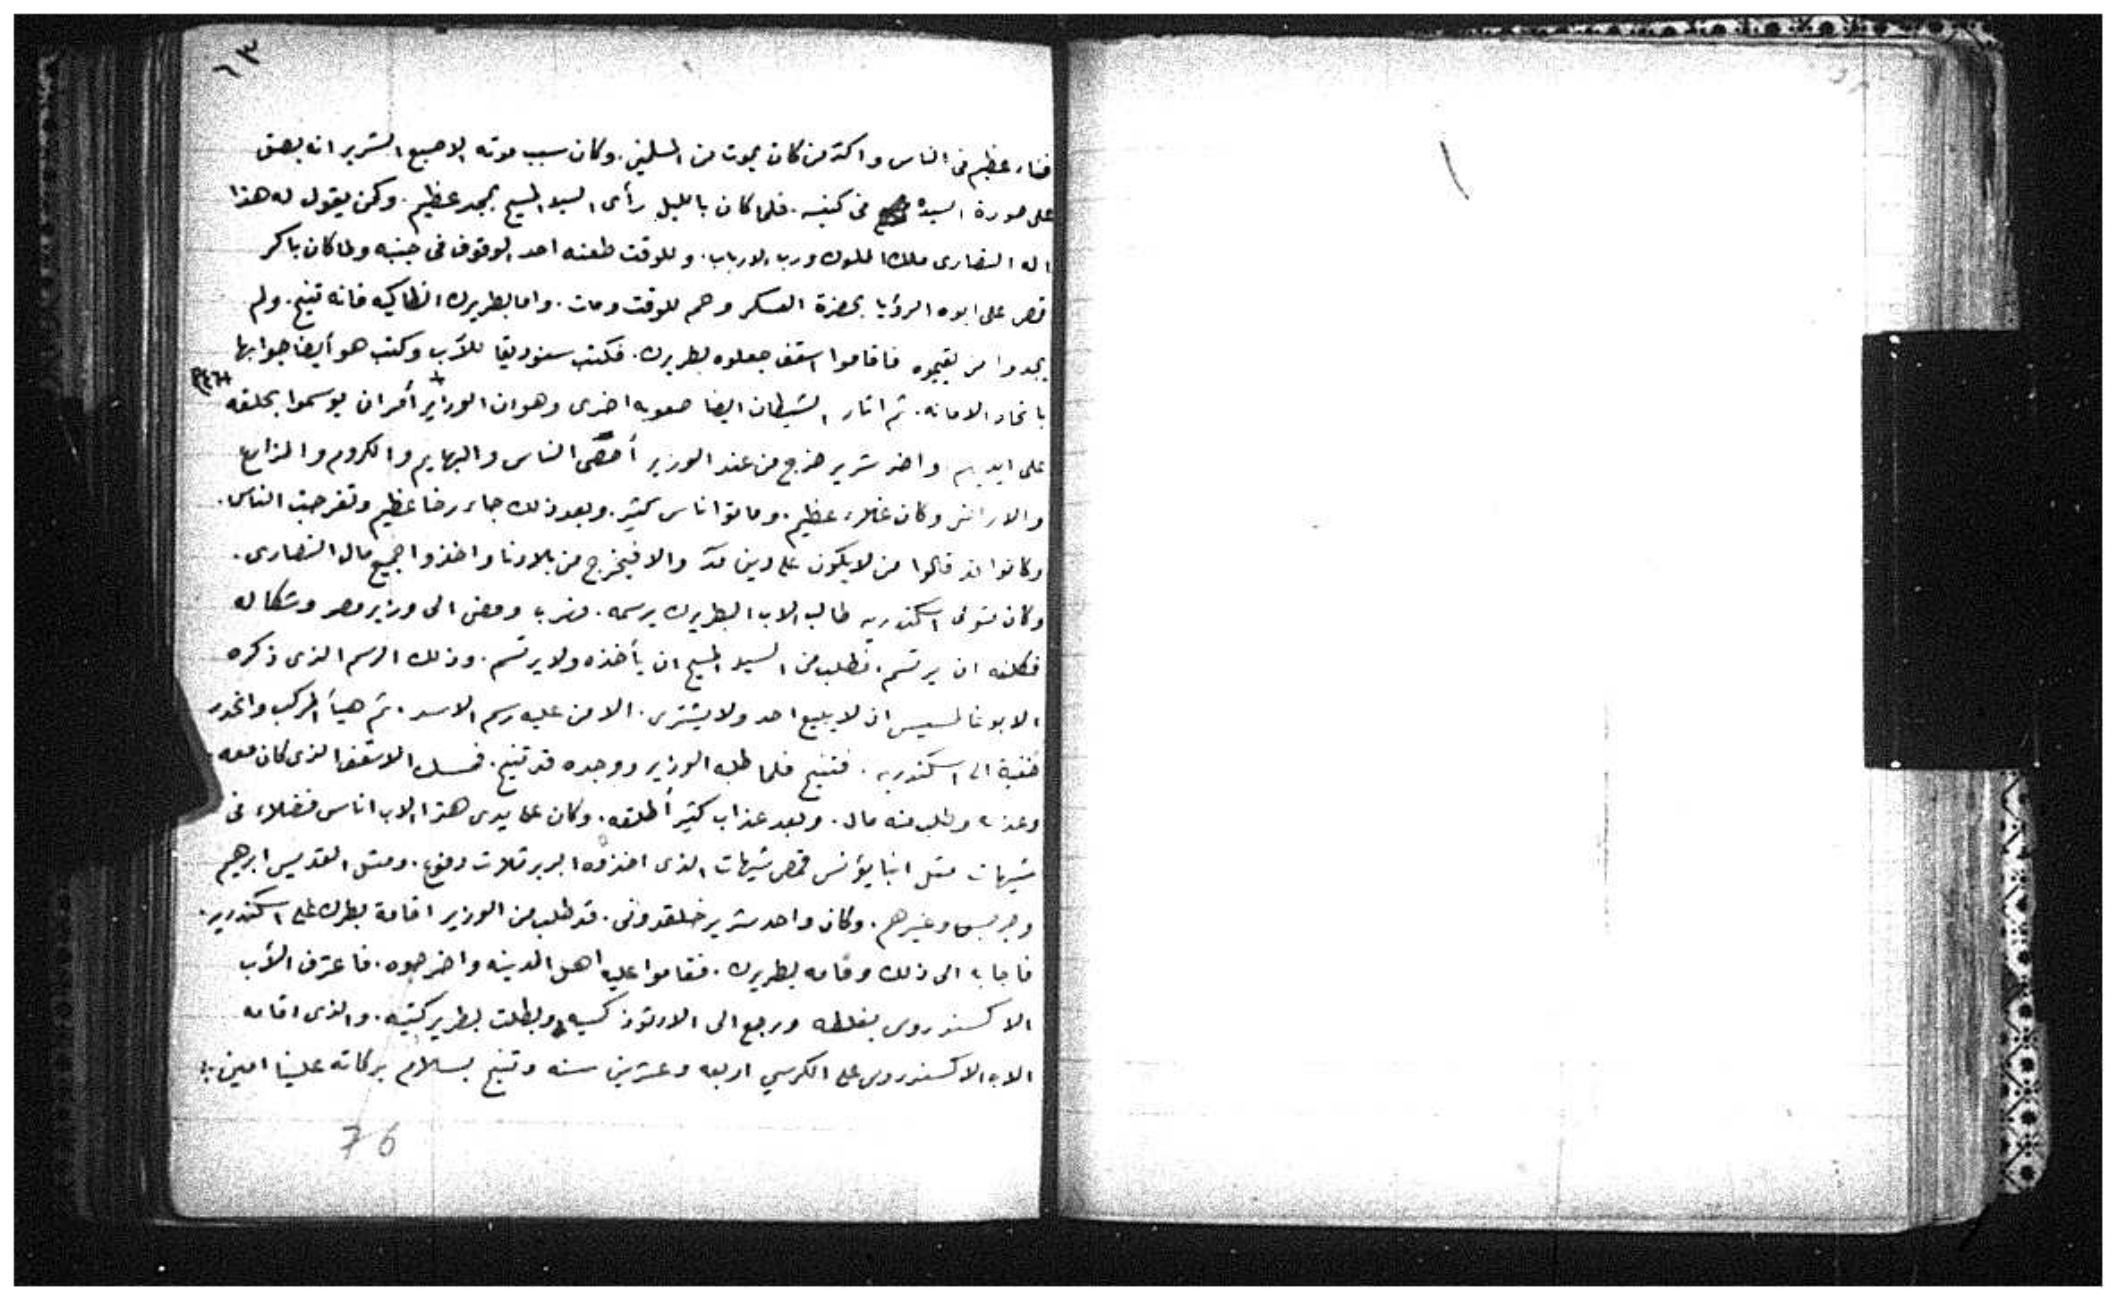 ٦٣
فناء عظيم فى الناس واكثر من كان يموت من المسلمين. وكان سبب موته الاصبع الشرير انه بصق
على صورة السيدة فى كنيسه. فلما كان بالليل رأى السيد المسيح بمجد عظيم. وكمن يقول له هذا
اله النصارى ملك الملوك ورب الارباب. وللوقت طعنه احد الوقوف فى جنبه ولما كان باكر
قص على ابوه الرؤيا بحضرة العسكر وحم للوقت ومات. واما بطريرك انطاكيه فانه تنيح. ولم
يجدوا من يقيموه فاقاموا اسقف جعلوه بطريرك. فكتب سنوديقا للأب وكتب هو أيضا جوابها
باتحاد الامانه. ثم اثار الشيطان ايضا صعوبه اخرى وهو ان الوزير أمر ان يوسموا بحلقه
على ايديهم واخر شرير خرج من عند الوزير أحصى الناس والبهايم والكروم والمزارع
والاراضى وكان غلاء عظيم. وماتوا اناس كثير. وبعد ذلك جاء رخا عظيم وتفرجت الناس.
وكانوا قد قالوا من لا يكون على دين والا فيخرج من بلادنا واخذوا جميع مال النصارى.
وكان متولى اسكندريه طالب الاب البطريرك برسمه. فهرب ومضى الى وزير مصر وشكا له
فكلفه ان يرتسم. فطلب من السيد المسيح ان يأخذه ولا يرتسم. وذلك الرسم الذى ذكره
الابوغالمسيس ان لا يبيع احد ولا يشترى. الا من عليه رسم الاسد. ثم هيأ المركب وانحدر
خفية الى اسكندريه. فتنيح فلما طلبه الوزير ووجده قد تنيح. فمسك الاسقف الذى كان معه
وعذبه وطلب منه مال. وبعد عذاب كثير أطلقه. وكان على يدى هذا الاب اناس فضلاء فى
شيهات مثل انبا يؤنس قمص شيهات الذى اخذوه البربر ثلاث دفوع. ومثل القديس ابرهيم
وجرجس وغيرهم. وكان واحد شرير خلقدونى. قد طلب من الوزير اقامة بطرك على اسكندريه.
فاجابه الى ذلك وقامه بطريرك. فقاموا عليه اهل المدينه واخرجوه. فاعترف الأب
الاكسندروس بغلطه ورجع الى الارتوذكسيه وبطلت بطريركيته. والذى اقامه
الاب الاكسندروس على الكرسي اربعه وعشرين سنه وتنيح بسلام بركاته علينا امين
76